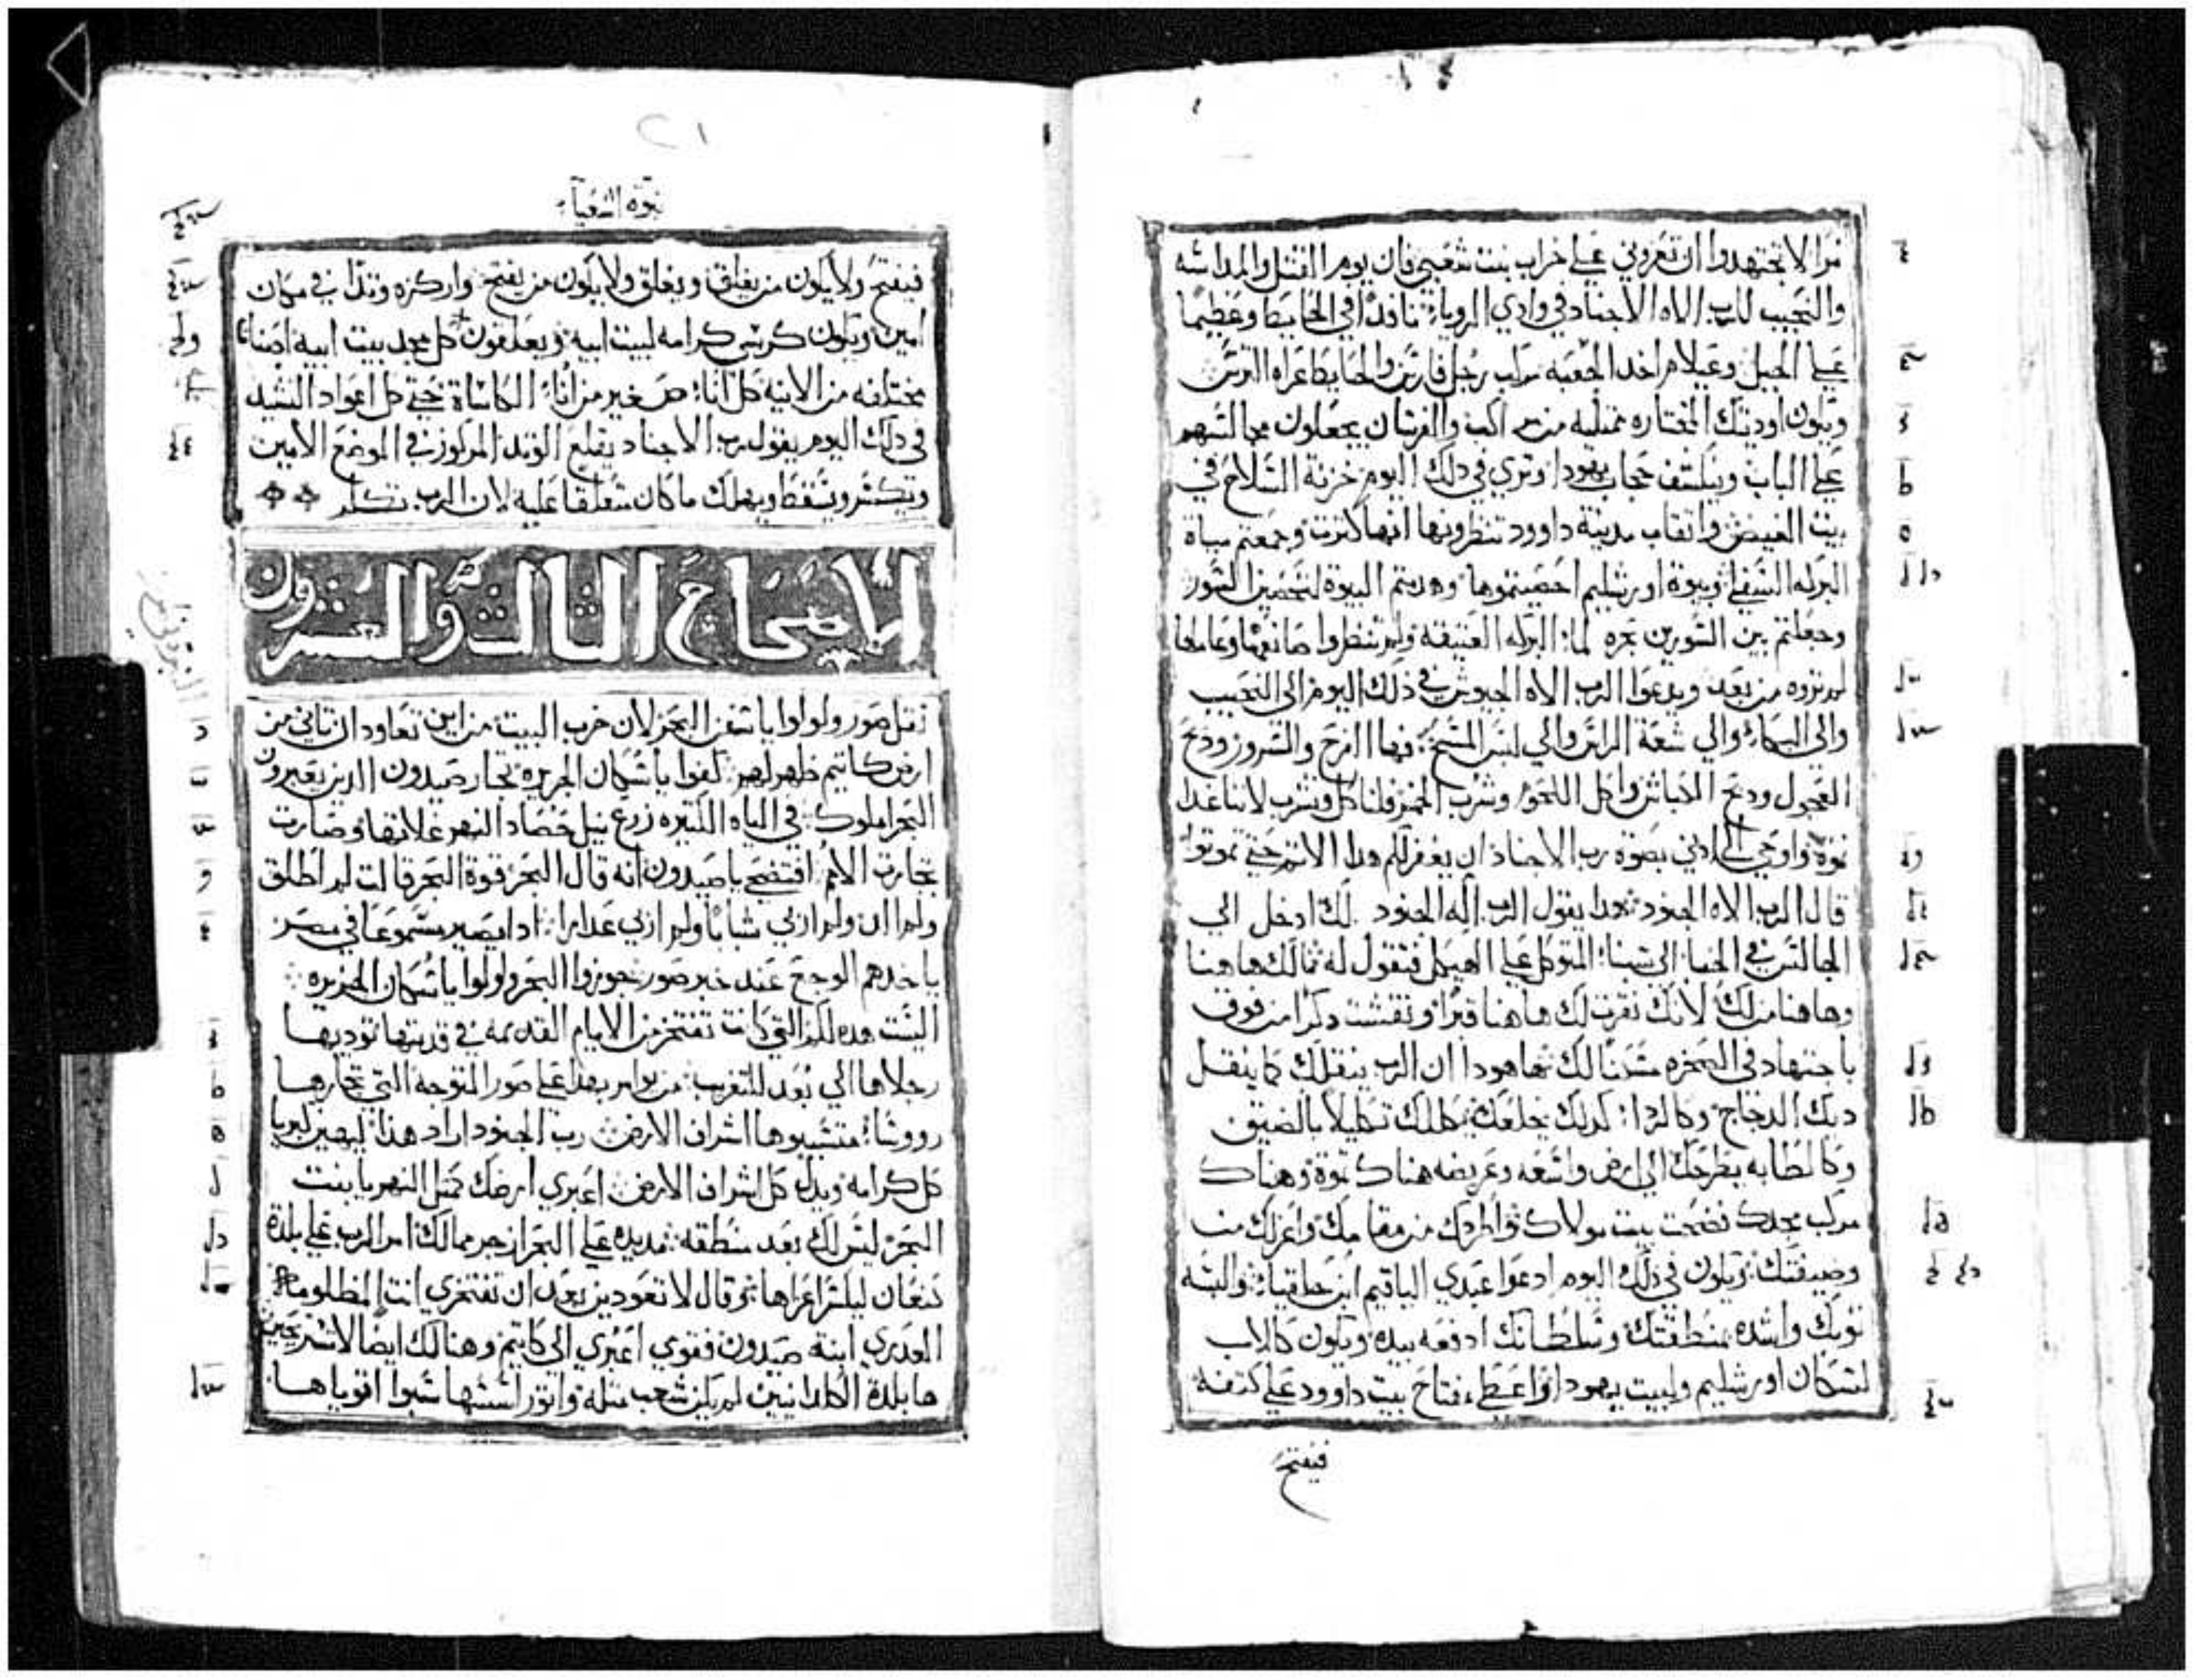 مرا لا تجتهدوا ان تعزوني علي خراب بنت شعبي فان يوم القتل والمداسه
والنحيب للرب الاه الاجناد في وادي الرويا نافدا في الحايط وعظيما
علي الجبل وعيلام اخد الجعبه مركب رجل فارس والحايط اعراه الترس
ويكون اوديتك المختاره ممتليه مراكب والفرسان يجعلون مجالسهم
علي الباب وينكشف حجاب يهودا وتري في دلك اليوم خزنة السلاح في
بيت الغيض وانقاب مدينة داوود تنظرونها انها كترت وجمعتم مياة
البركه السفلي وبيوة اورشليم احصيتموها وهدمتم البيوة لتحصين السور
وجعلتم بين السورين بحره لما البركه العتيقه ولم تنظروا صانعها وعاملها
لم تروه من بعد ويدعوا الرب الاه الجيوش في ذلك اليوم الي النحيب
والي البكاء والي شعة الراس والي لبس المسح فها الفرح والسرور ودبح
العجول ودبح الكباش واكل اللحوم وشرب الخمر فلناكل ونشرب لاننا غدا
نموة واوحي الي ادني بصوة رب الاجناد ان يغفر لكم هدا الاتم حتي تموتوا
قال الرب الاه الجنود هدا يقول الرب اله الجنود لك ادخل الي
الجالس في الخبا الي شبنا المتوكل علي الهيكل فتقول له مالك هاهنا
وهاهنا من لك لانك نقرت لك هاهنا قبرا ونقشت دكرا من فوق
باجتهاد في الصخره مسكنا لك هاهودا ان الرب ينقلك كما ينقل
ديك الدجاج وكالردا كدلك يخلعك يكللك تكليلا بالضيق
وكالطابه يطرحك الي ارض واسعه وعريضه هناك تموة وهناك
مركب مجدك فضحت بيت مولاك واطردك من مقامك واعزلك من
وضيفتك ويكون في ذلك اليوم ادعوا عبدي الياقيم ابن حلقيا والبسه
توبك واشده بمنطقتك وسلطانك ادفعه بيده ويكون كالاب
لسكان اورشليم ولبيت يهودا واعطي مفتاح بيت داوود علي كتفه
فيفتح
نبوة اشعياء
فيفتح ولا يكون من يغلق ويغلق ولا يكون من يفتح واركزه وتدا في مكان
امين ويكون كرسي كرامه لبيت ابيه ويعلقون كل مجد بيت ابيه اصنافا
مختلفه من الانيه كل انا صغير من انا الكاساة حتي كل اعواد النشيد
في دلك اليوم يقول رب الاجناد يقلع الوتد المركوز في الموضع الامين
ويتكسر ويسقط ويهلك ما كان متعلقا عليه لان الرب تكلم
الاصحاح الثالث والعشرون
تقل صور ولولوا يا سفن البحر لان خرب البيت من اين تعاود ان تاني من
ارض كاتيم ظهر لهم كفوا يا سكان الجزيره تجار صيدون الدين يعبرون
البحر املوك في المياه الكتيره زرع نيل حصاد النهر غلاتها وصارت
تجارت الامم افتضحي يا صيدون انه قال البحر قوة البحر قالت لم اطلق
ولم الد ولم اربي شبابا ولم اربي عدارا ادا يصير مسموعا في مصر
ياخدهم الوجع عند خبر صور جوزوا البحر ولولوا يا سكان الجزيره
اليست هده لكم التي كانت تفتخر من الايام القديمه في قدمتها توديها
رجلاها الي بعد للتغرب من يوامر بهدا علي صور المتوجه التي تجارها
رووسا متسببوها اشراف الارض رب الجنود اراد هذا ليهين كبريا
كل كرامه ويدل كل اشراف الارض اعبري ارضك كمتل النهر يا بنت
البحر ليس لك بعد منطقه مد يده علي البحر ازجر ممالك امر الرب علي بلدة
كنعان ليكسر اعزاها وقال لا تعودين بعد ان تفتخري انت المظلومه
العدري ابنة صيدون فقومي اعبري الي كاتيم وهنالك ايضا لا استريحين
ها بلدة الكلدانيين لم يكن شعب متله واتور اسسها سبوا اقوياها